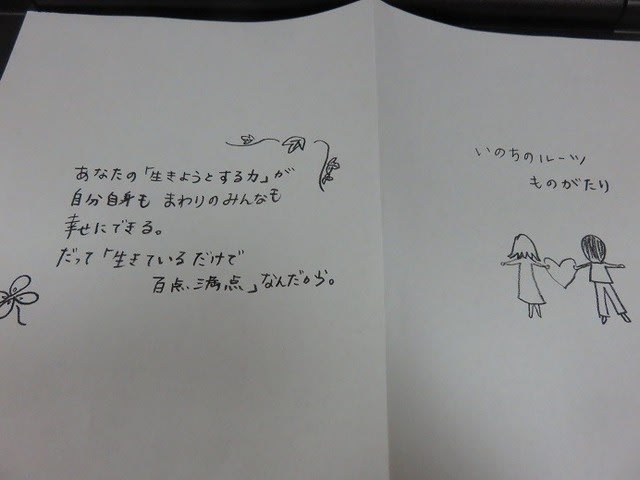 あなたの「生きようとする力」が
自分自身も まわりのみんなも
幸せにできる。
だって「生きているだけで
百点満点」なんだから。
いのちのルーツ
ものがたり